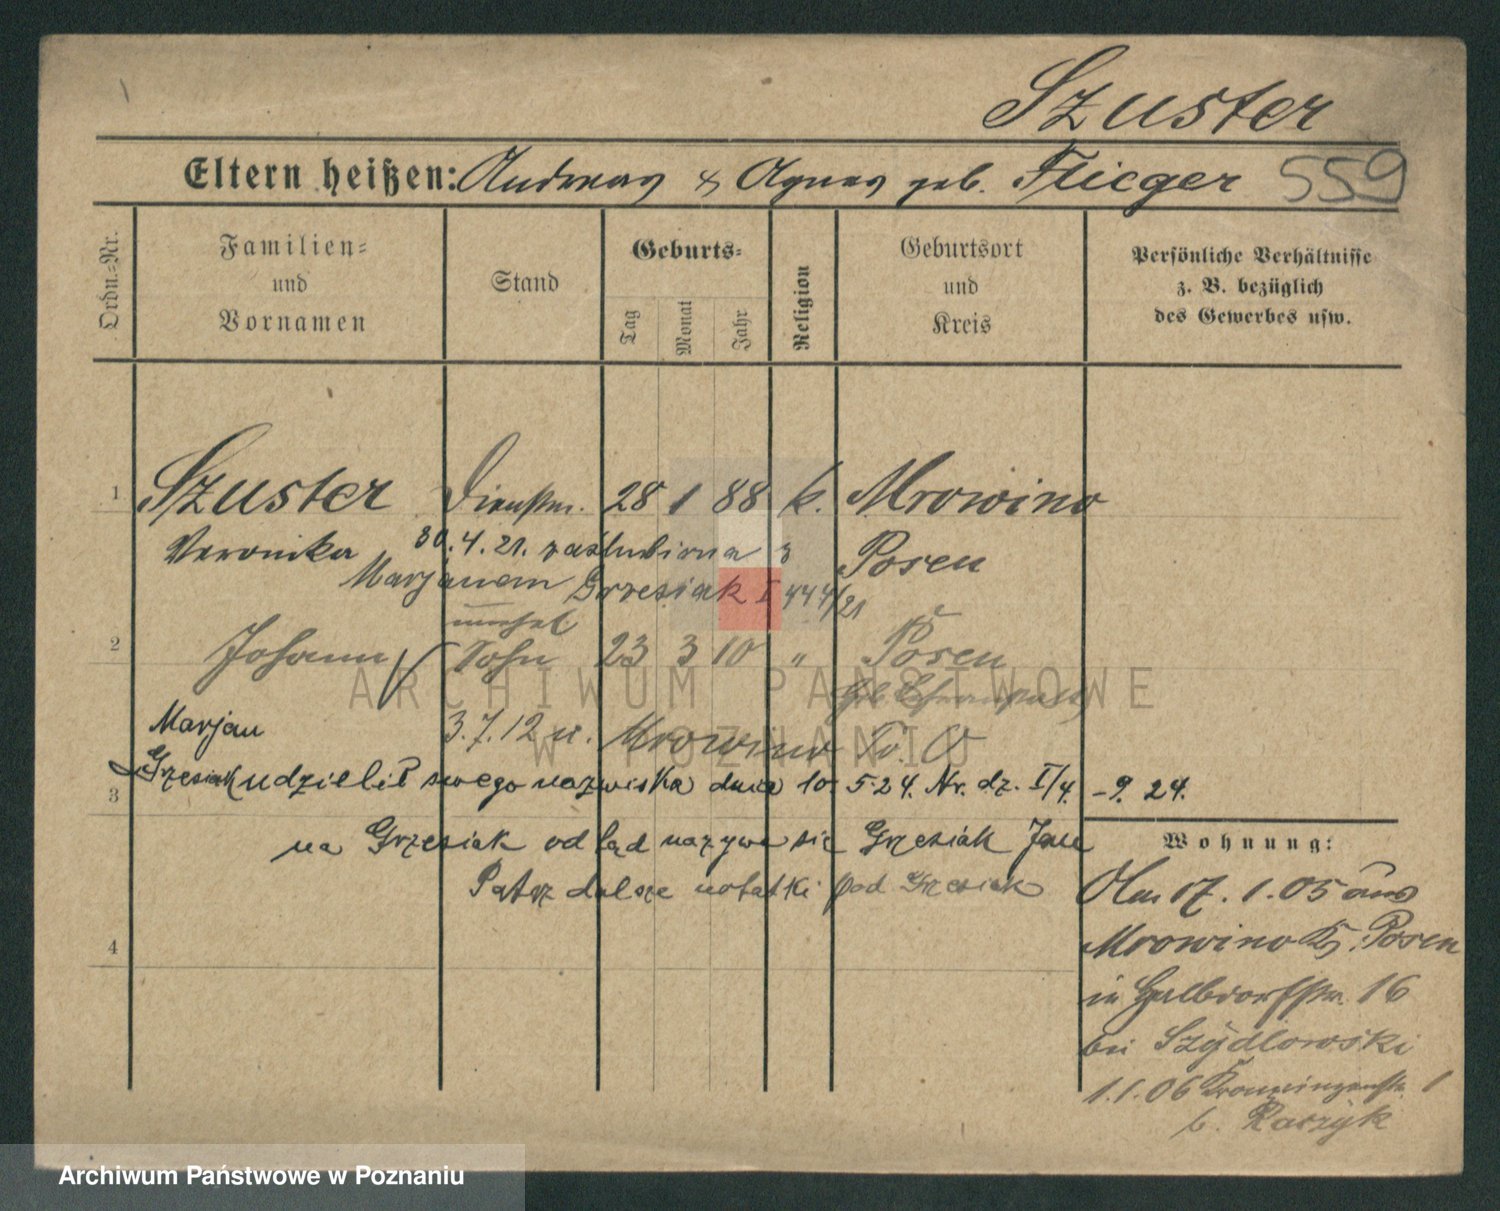 Szuster
Eltern heißen: Andreas & Agnes geb. Flieger 559
Ordn.=Nr.
Familien=
und
Vornamen
Stand
Geburts=
Tag
Monat
Jahr
Religion
Geburtsort
und
Kreis
Persönliche Verhältnisse
z. B. bezüglich
des Gewerbes usw.
1 Szuster Dienstm. 28 1 88 k. Mrowino
Veronika 30.4.21. zaślubiona z Posen
Marjanem Grzesiak I 444/21
unehel
2 Johann Sohn 23 3 10 " Posen
Marjan 3.7.12 n. Mrowino
3 Grzesiak udzielił swego nazwiska dnia 10.5.24. Nr. dz. I/4. -9. 24.
na Grzesiak od tąd nazywa się Grzesiak Jan
Patrz dalsze notatki pod Grzesiak
4
Wohnung:
17.1.05 aus
Mrowino Kr. Posen
in Halbdorfstr. 16
bei Szydlowski
1.1.06 Kronprinzenstr. 1
b. Raczyk
ARCHIWUM PAŃSTWOWE
W POZNANIU
Archiwum Państwowe w Poznaniu